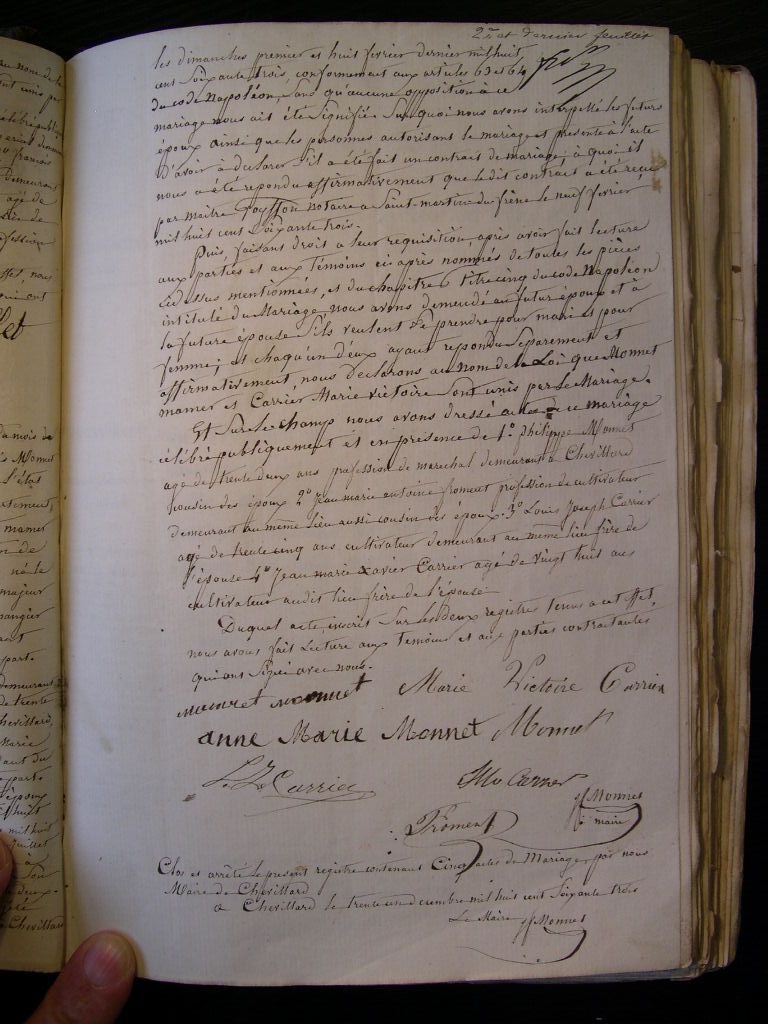 2me et dernier feuillet
les dimanches premier et huit fevrier dernier mil huit
cent soixante trois, conformement aux articles 63 et 64
du code Napoléon, sans qu'aucune opposition à ce
mariage nous ait été signifiée. Sur quoi nous avons interpellé les futurs
époux ainsi que les personnes autorisant le mariage et présente à l'acte
D'avoir à déclarer s'il a été fait un contrat de mariage, à quoi il
nous a été repondu affirmativement que le dit contrat a été reçu
par maitre notaire a Saint-martin du frêne le neuf fevrier
mil huit cent soixante trois.
Puis, faisant droit a leur requisition, après avoir fait lecture
aux parties et aux témoins ci après nommés de toutes les pièces
ci dessus mentionnées, et du chapitre 6 titre cinq du code Napoléon
intitulé du Mariage nous avons demandé au futur époux et à
la future épouse s'ils veulent se prendre pour mari et pour
femme; et chaqu'un d'eux ayant repondu séparement et
affirmativement nous declarons au nom de la Loi que Monnet
mamer et Carrier Marie victoire sont unis par le Mariage.
Et sur le champ nous avons dressé acte de ce mariage
célébré publiquement et en présence de 1o philippe Monnet
agé de trente deux ans profession de marechal demeurant à Chevillard
cousin des époux 2o Jean marie antoine froment profession de cultivateur
demeurant au même lieu aussi cousin des époux 3o Louis Joseph Carrier
agé de trente cinq ans cultivateur demeurant au même lieu frère de
l'épouse 4o Jean marie Xavier Carrier agé de vingt huit ans
cultivateur audit lieu frère de l'épouse
Duquel acte, inscrit sur les deux registres tenus a cet effet,
nous avons fait lecture aux temoins et aux parties contractantes
qui ont signé avec nous.
monnet Marie Victoire Carrier
anne Marie Monnet Monnet
L. J. Carrier Carrier
Monnet
maire
Froment
Clos et arrêté le present registre contenant Cinq actes de Mariage, par nous
Maire de Chevillard
a Chevillard le trente un decembre mil huit cent soixante trois
Le Maire Monnet